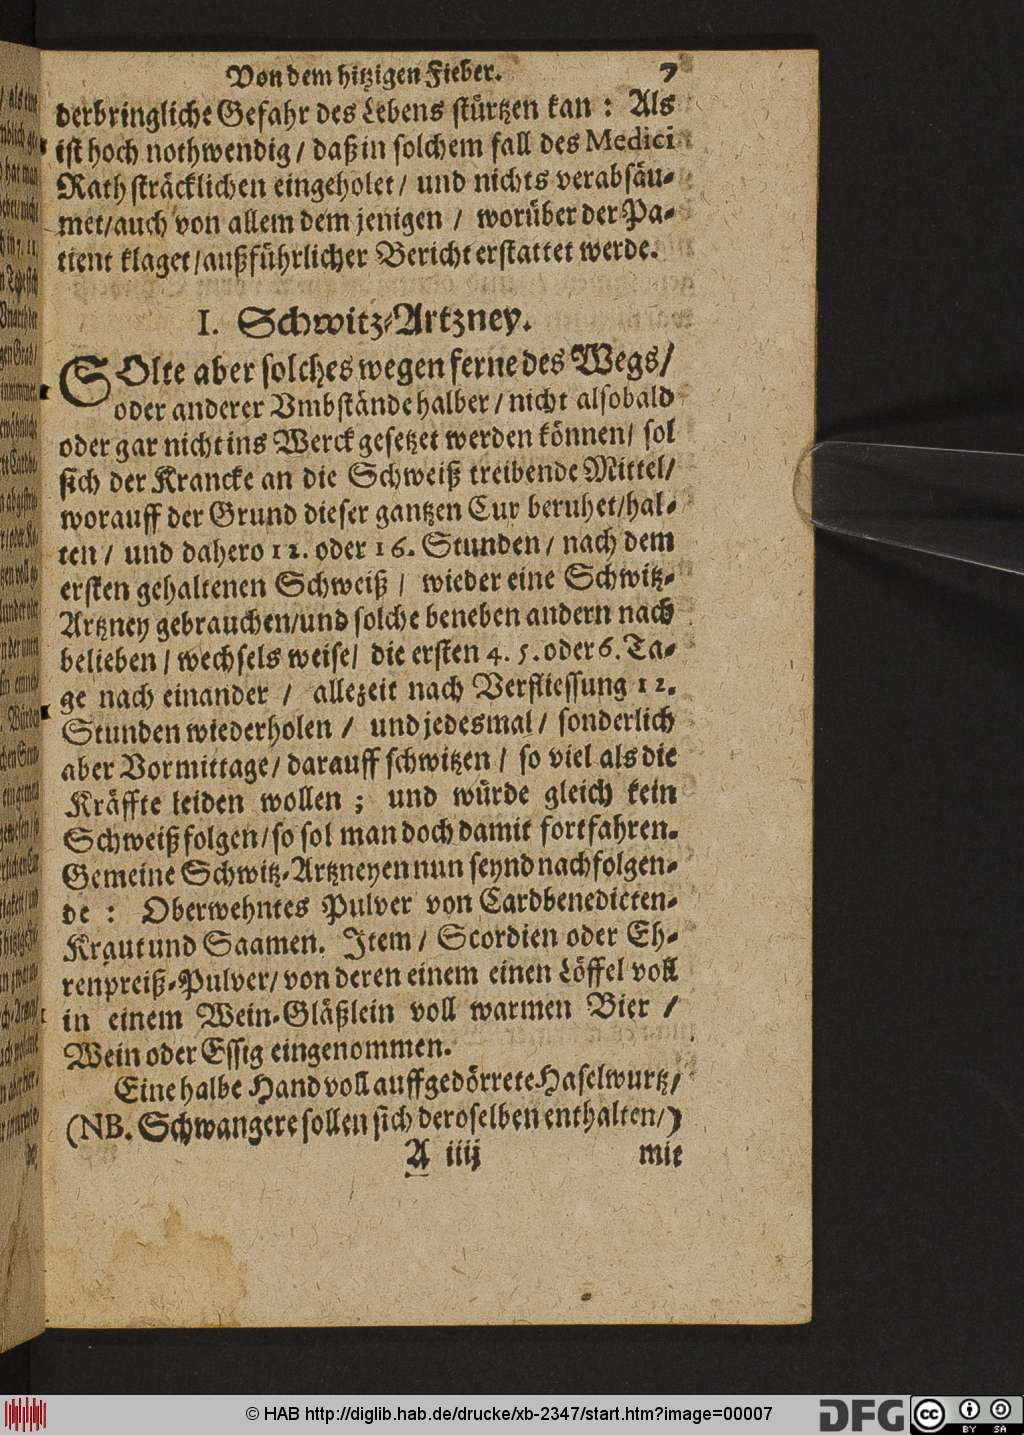 Von dem hitzigen Fieber. 7
derbringliche Gefahr des Lebens stürtzen kan : Als
ist hoch nothwendig / daß in solchem fall des Medici
Rath sträcklichen eingeholet / und nichts verabsäu-
met/auch von allem dem jenigen / worüber der Pa-
tient klaget/außführlicher Bericht erstattet werde.
I. Schwitz-Artzney.
SOlte aber solches wegen ferne des Wegs/
oder anderer Vmbstände halber / nicht alsobald
oder gar nicht ins Werck gesetzet werden können/ sol
sich der Krancke an die Schweiß treibende Mittel/
worauff der Grund dieser gantzen Cur beruhet/hal-
ten / und dahero 12. oder 16. Stunden / nach dem
ersten gehaltenen Schweiß / wieder eine Schwitz-
Artzney gebrauchen/und solche beneben andern nach
belieben / wechsels weise/ die ersten 4. 5. oder 6. Ta-
ge nach einander / allezeit nach Verfliessung 12.
Stunden wiederholen / und jedesmal/ sonderlich
aber Vormittage/ darauff schwitzen / so viel als die
Kräffte leiden wollen ; und würde gleich kein
Schweiß folgen/so sol man doch damit fortfahren.
Gemeine Schwitz-Artzneyen nun seynd nachfolgen-
de : Oberwehntes Pulver von Cardbenedicten-
Kraut und Saamen. Item / Scordien oder Eh-
renpreiß-Pulver/ von deren einem einen Löffel voll
in einem Wein-Gläßlein voll warmen Bier /
Wein oder Essig eingenommen.
Eine halbe Hand voll auffgedörrete Haselwurtz/
(NB. Schwangere sollen sich deroselben enthalten/)
A iiij mit
© HAB http://diglib.hab.de/drucke/xb-2347/start.htm?image=00007
DFG
cc BY SA